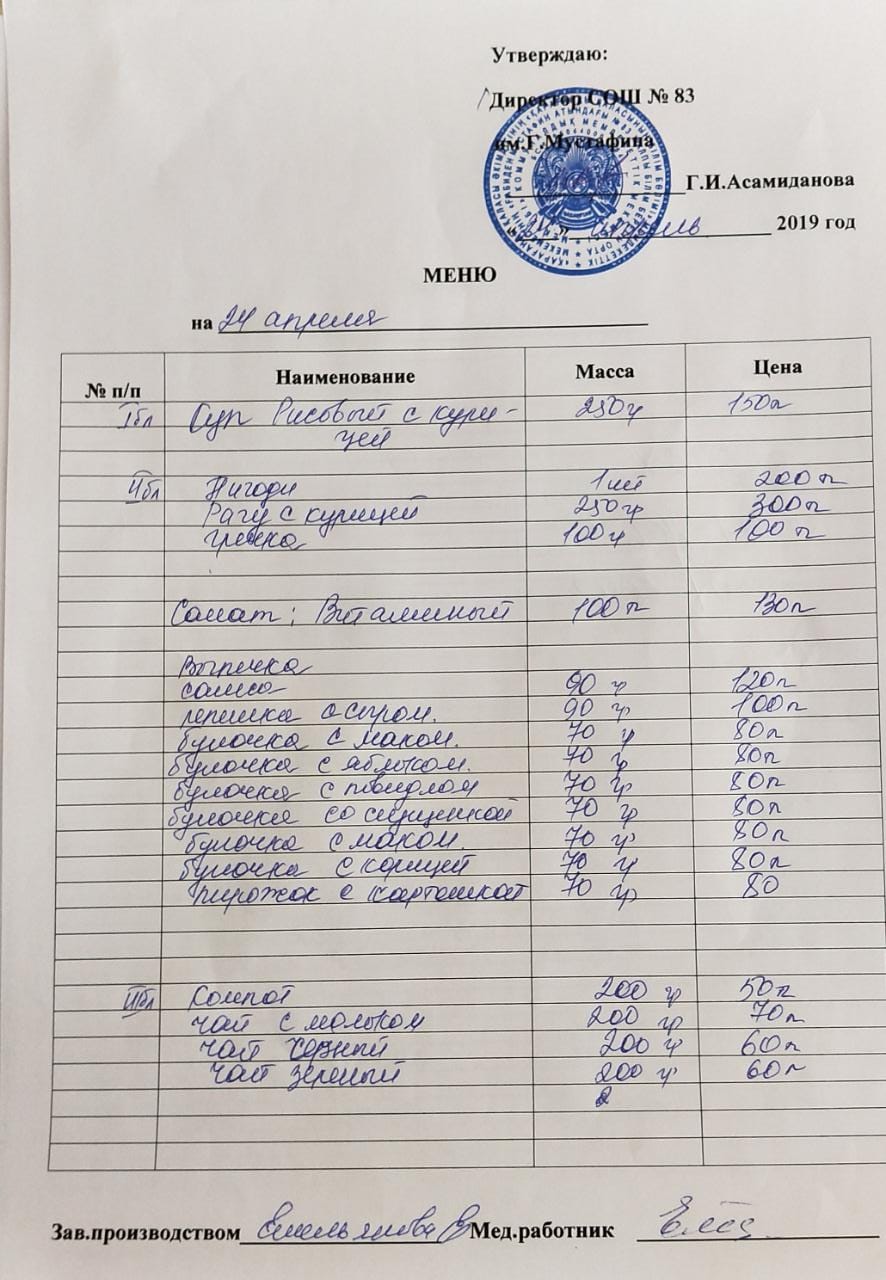 Утверждаю:
Директор СОШ № 83
им.Г.Мустафина
Г.И.Асамиданова
«24» апрель 2019 год
МЕНЮ
на 24 апреля
№ п/п Наименование Масса Цена
Iбл Суп Рисовый с кури- 250гр 150т
цей
IIбл Нигоди 1шт 200т
Рагу с курицей 250гр 300т
гречка 100гр 100т
Салат: Витаминный 100т 130т
Выпечка
самса 90 гр 120т
лепешка с сыром. 90 гр 100т
булочка с маком. 70 гр 80т
булочка с яблоком. 70 гр 80т
булочка с повидлом 70 гр 80т
булочка со сгущенкой 70 гр 80т
булочка с маком. 70 гр 80т
булочка с корицей 70 гр 80т
пирожок с картошкой 70 гр 80
IIIбл Компот 200 гр 50т
чай с молоком 200 гр 70т
чай черный 200 гр 60т
чай зеленый 200 гр 60т
Зав.производством Емельянова Мед.работник